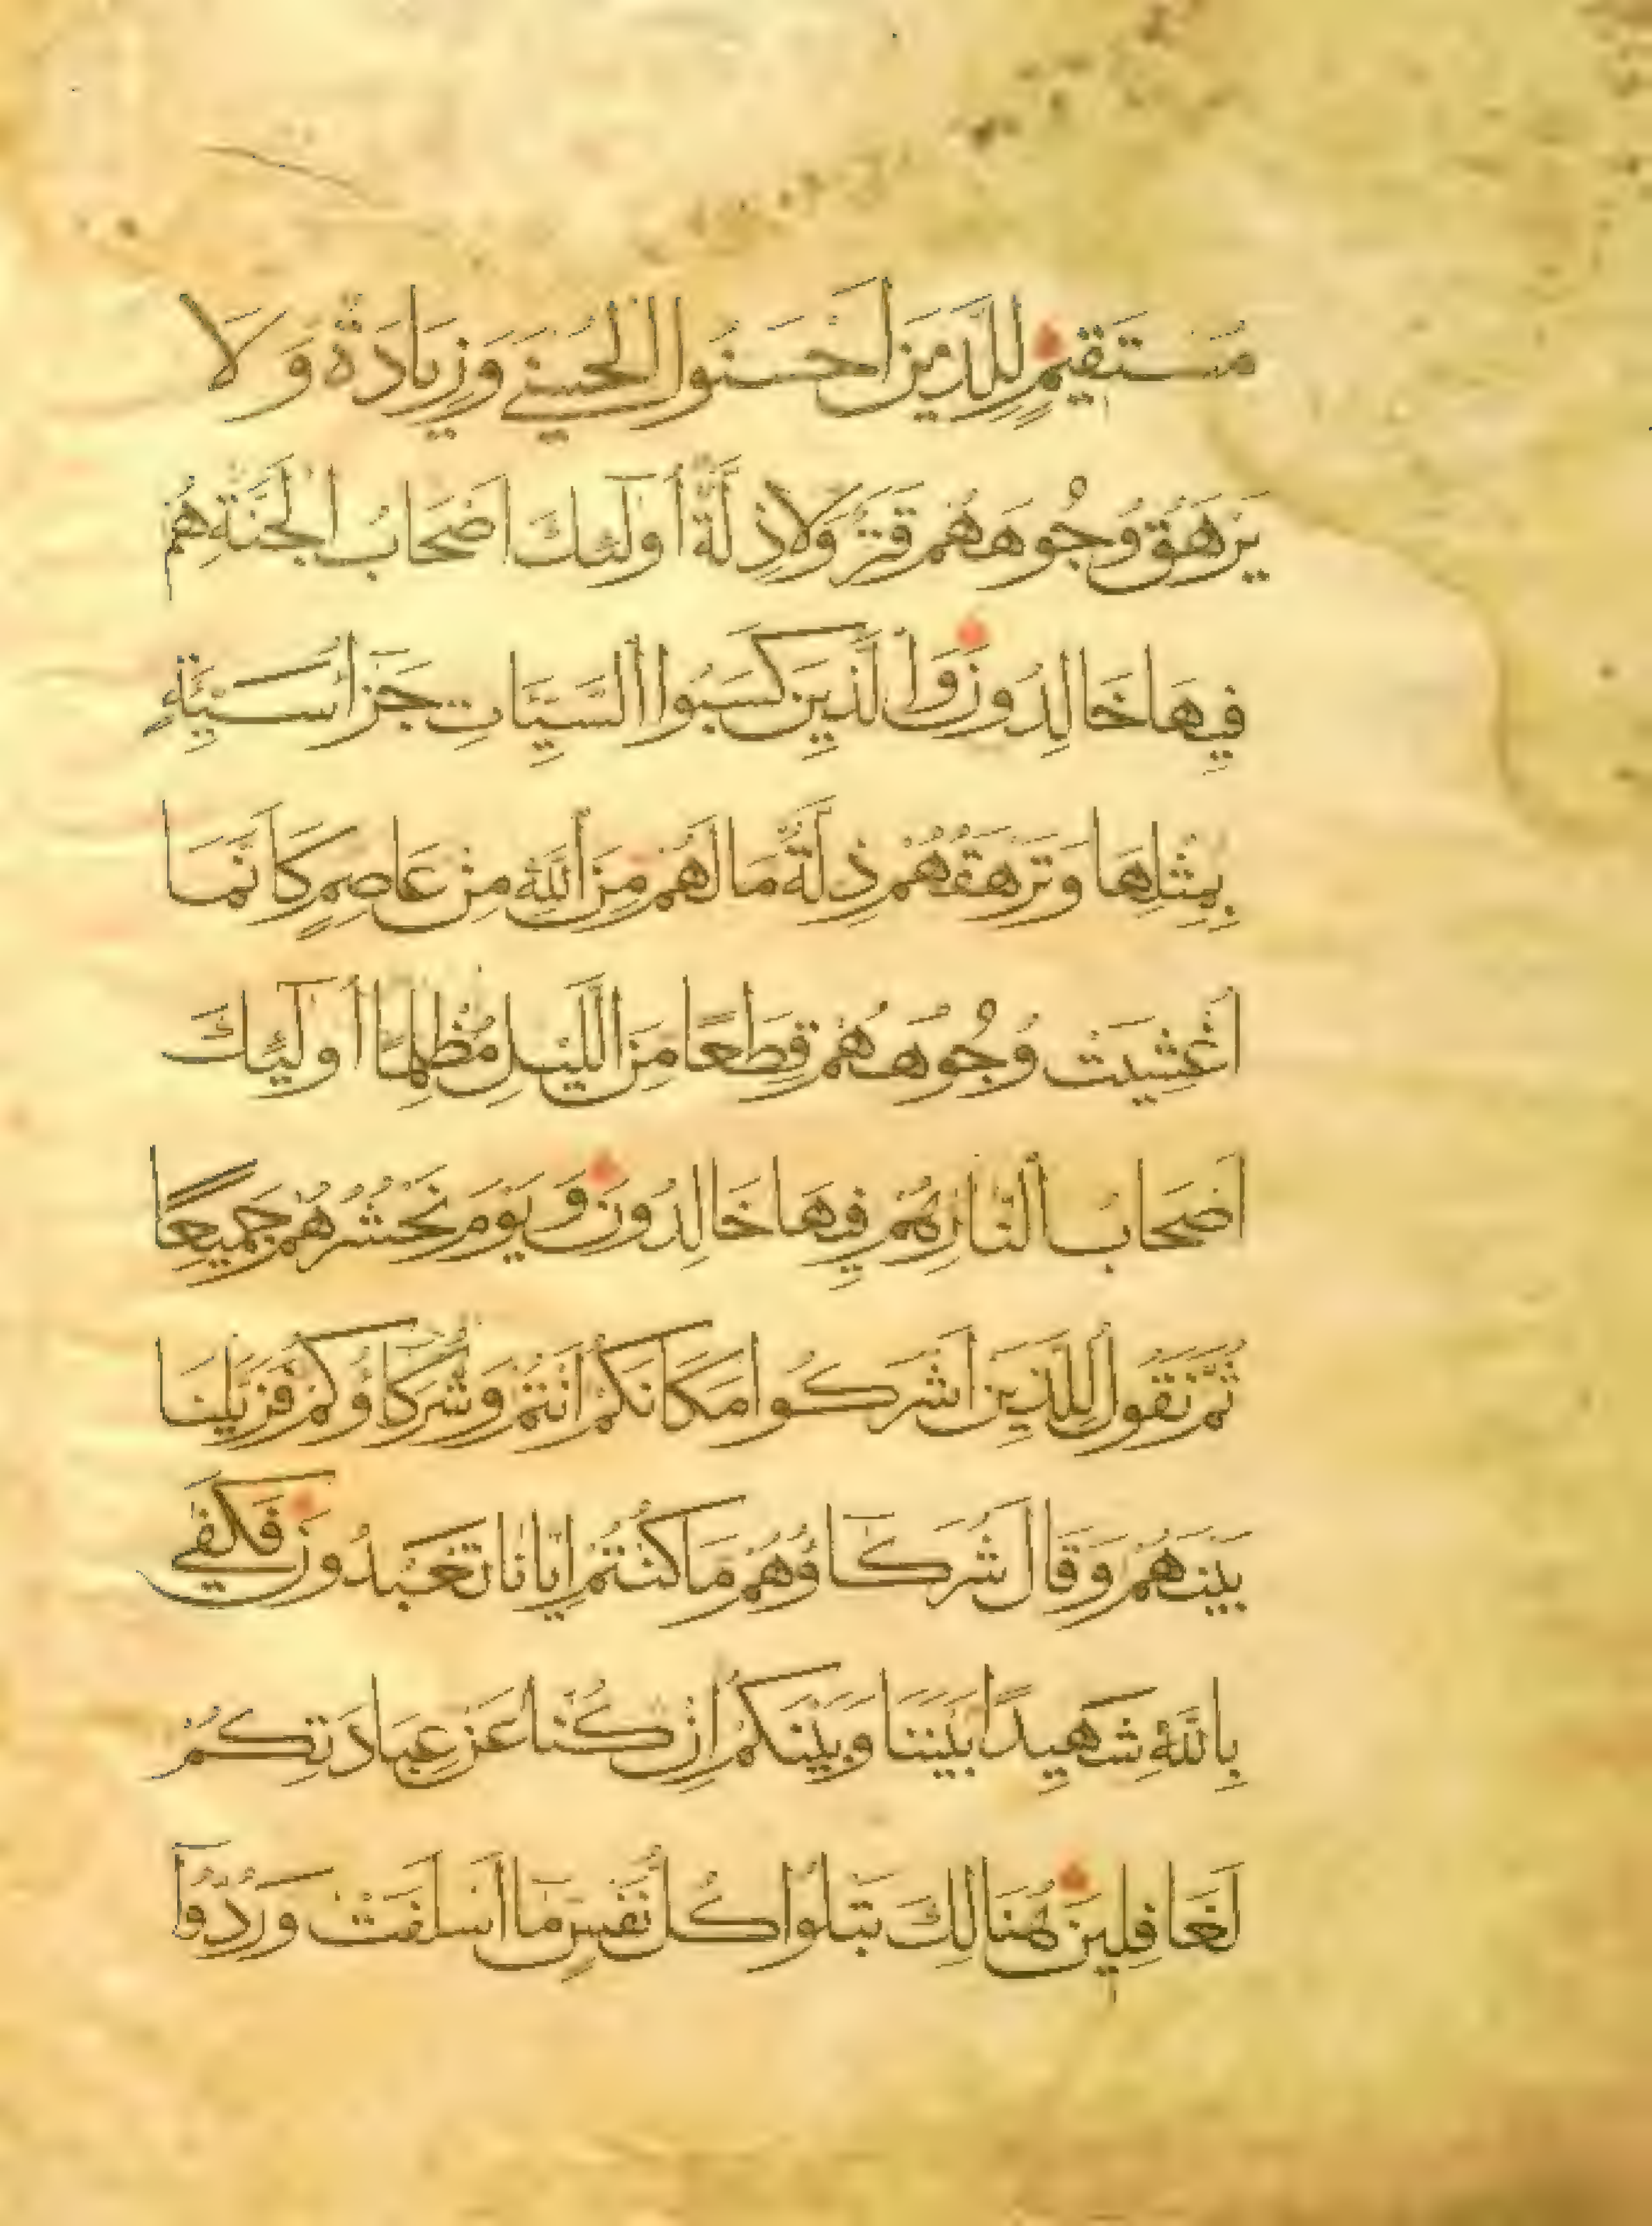 مُسْتَقِيمٍ لِلَّذِينَ أَحْسَنُوا الْحُسْنَى وَزِيَادَةٌ وَلَا
يَرْهَقُ وُجُوهَهُمْ قَتَرٌ وَلَا ذِلَّةٌ أُولَٰئِكَ أَصْحَابُ الْجَنَّةِ هُمْ
فِيهَا خَالِدُونَ وَالَّذِينَ كَسَبُوا السَّيِّاتِ جَزَاءُ سَيِّئَةٍ
بِمِثْلِهَا وَتَرْهَقُهُمْ ذِلَّةٌ مَا لَهُمْ مِنَ اللَّهِ مِنْ عَاصِمٍ كَأَنَّمَا
أُغْشِيَتْ وُجُوهُهُمْ قِطَعًا مِنَ اللَّيْلِ مُظْلِمًا أُولَٰئِكَ
أَصْحَابُ النَّارِ هُمْ فِيهَا خَالِدُونَ وَيَوْمَ نَحْشُرُهُمْ جَمِيعًا
ثُمَّ نَقُولُ لِلَّذِينَ أَشْرَكُوا مَكَانَكُمْ أَنْتُمْ وَشُرَكَاؤُكُمْ فَزَيَّلْنَا
بَيْنَهُمْ وَقَالَ شُرَكَاؤُهُمْ مَا كُنْتُمْ إِيَّانَا تَعْبُدُونَ فَكَفَى
بِاللَّهِ شَهِيدًا بَيْنَنَا وَبَيْنَكُمْ إِنْ كُنَّا عَنْ عِبَادَتِكُمْ
لَغَافِلِينَ هُنَالِكَ تَبْلُوا كُلُّ نَفْسٍ مَا أَسْلَفَتْ وَرُدُّوا